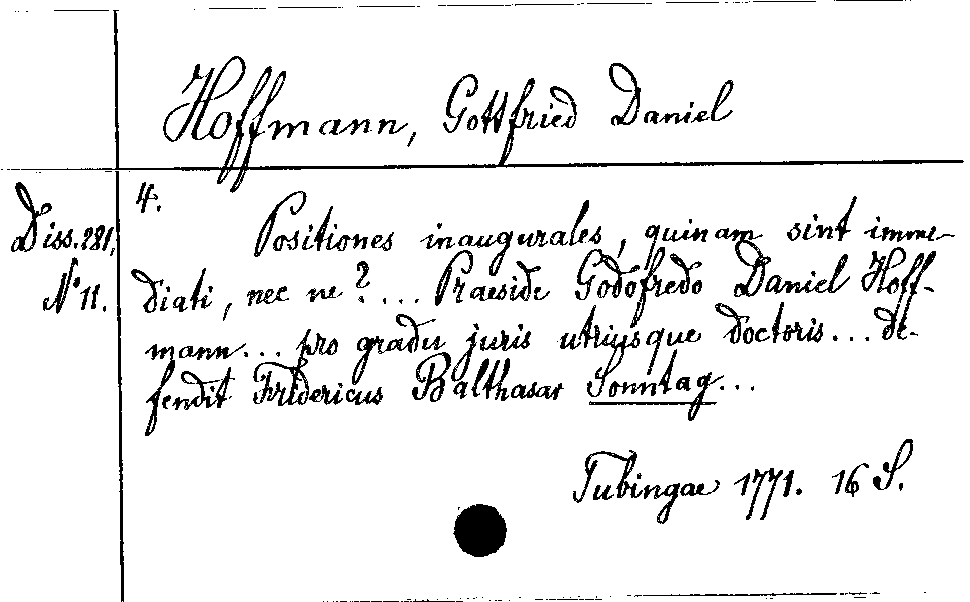 Hoffmann, Gottfried Daniel
Diss. 281,
N° 11.
4.
Positiones inaugurales, quinam sint imme-
diati, nec ne? ... Praeside Godofredo Daniel Hoff-
mann... pro gradu juris utriusque doctoris... de-
fendit Fridericus Balthasar Sonntag...
Tubingae 1771. 16 S.